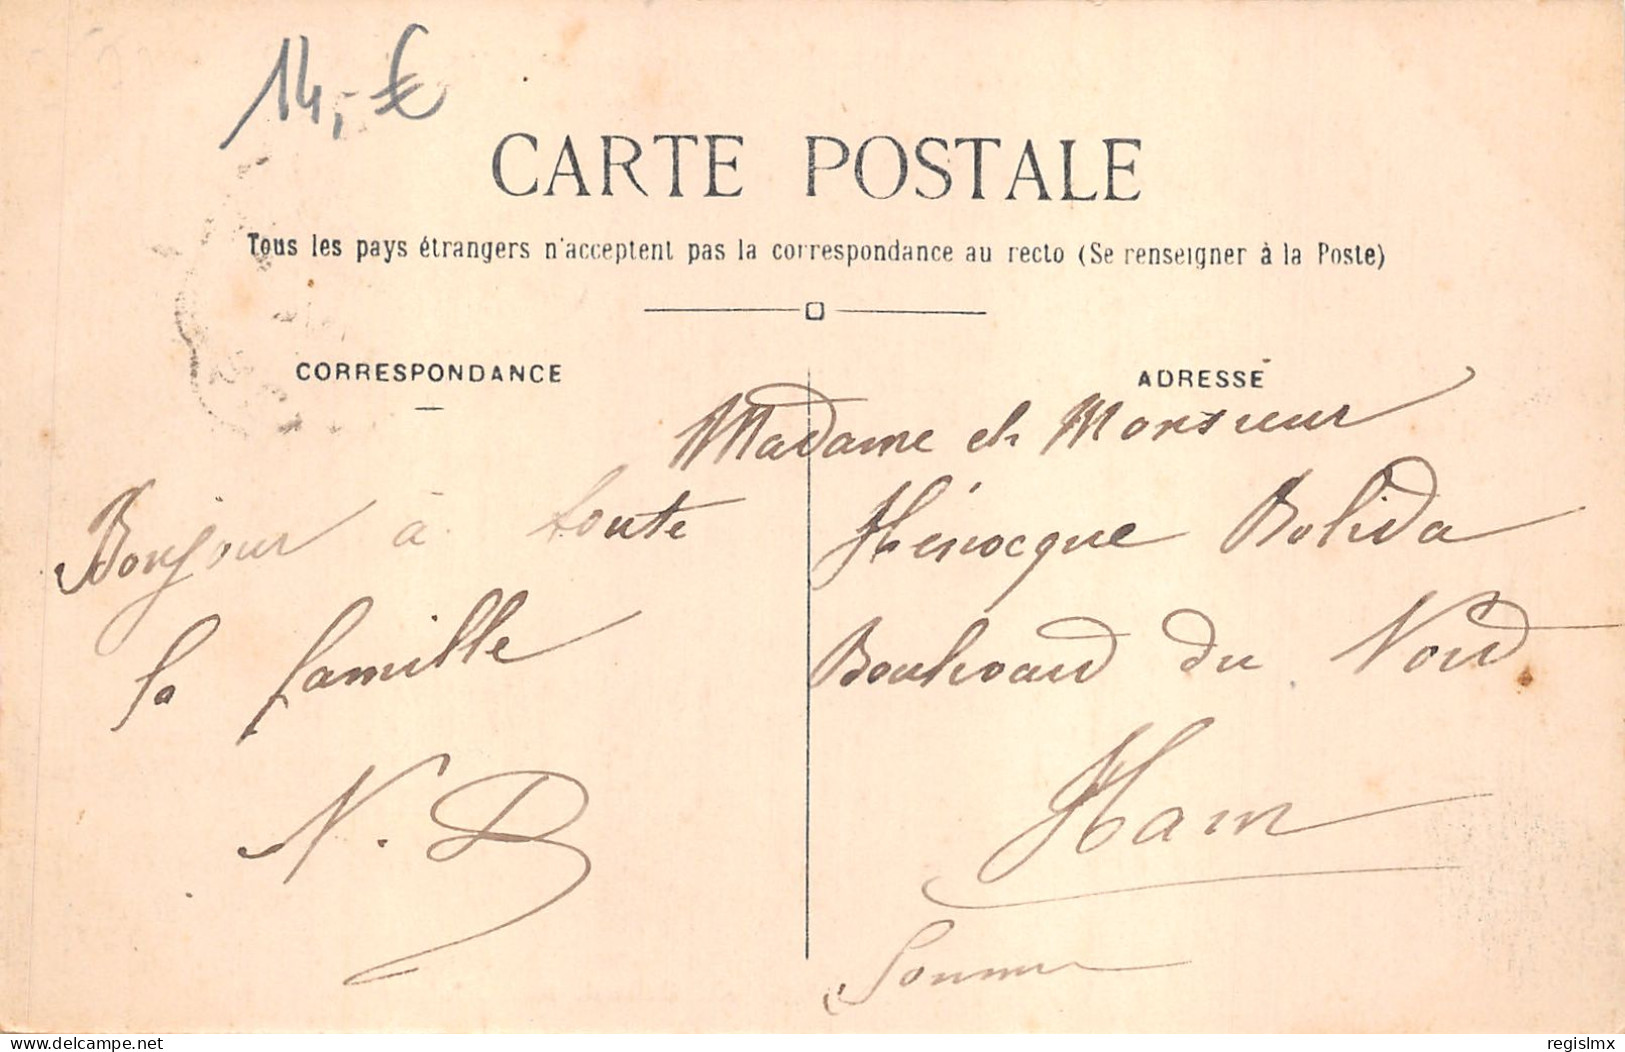 14,- €
CARTE POSTALE
Tous les pays étrangers n'acceptent pas la correspondance au recto (Se renseigner à la Poste)
CORRESPONDANCE
Bonjour à toute
la famille
N. D
ADRESSE
Madame et Monsieur
Hénocque Bolida
Boulevard du Nord
Ham
Somme
delcampe.net
regislmx